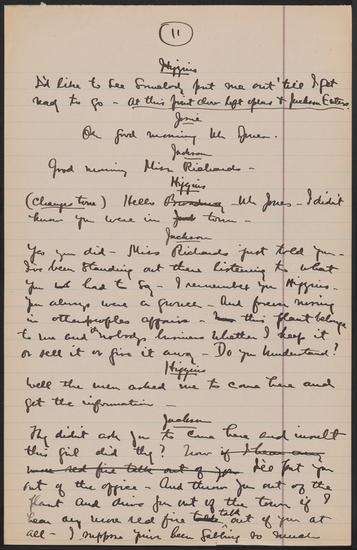 11
Higgins
I'd like to see Somebody put me out 'till I get
ready to go - At this point door left opens & Jackson Enters.
Josie
Oh good morning Mr Jones.
Jackson
Good morning Miss Richards -
Higgins
(Changes tone) Hello Mr Jones - I didn't
know you were in town -
Jackson
Yes you did - Miss Richards just told you -
I've been standing out there listening to what
you had to say - I remember you Higgins -
You always were a grouch - And forever nosing
in other peoples affairs - this plant belongs
to me and nobodys business whether I keep it
or sell it or give it away - Do you Understand?
Higgins
Well the men asked me to come here and
get the information -
Jackson
They didn't ask you to come here and insult
this girl did they? Now if I hear any
more red fire talk out of you I'll put you
out of the office - And throw you out of the
plant and drive you out of the town if I
hear any more red fire talk out of you at
all - I suppose you've been getting so much